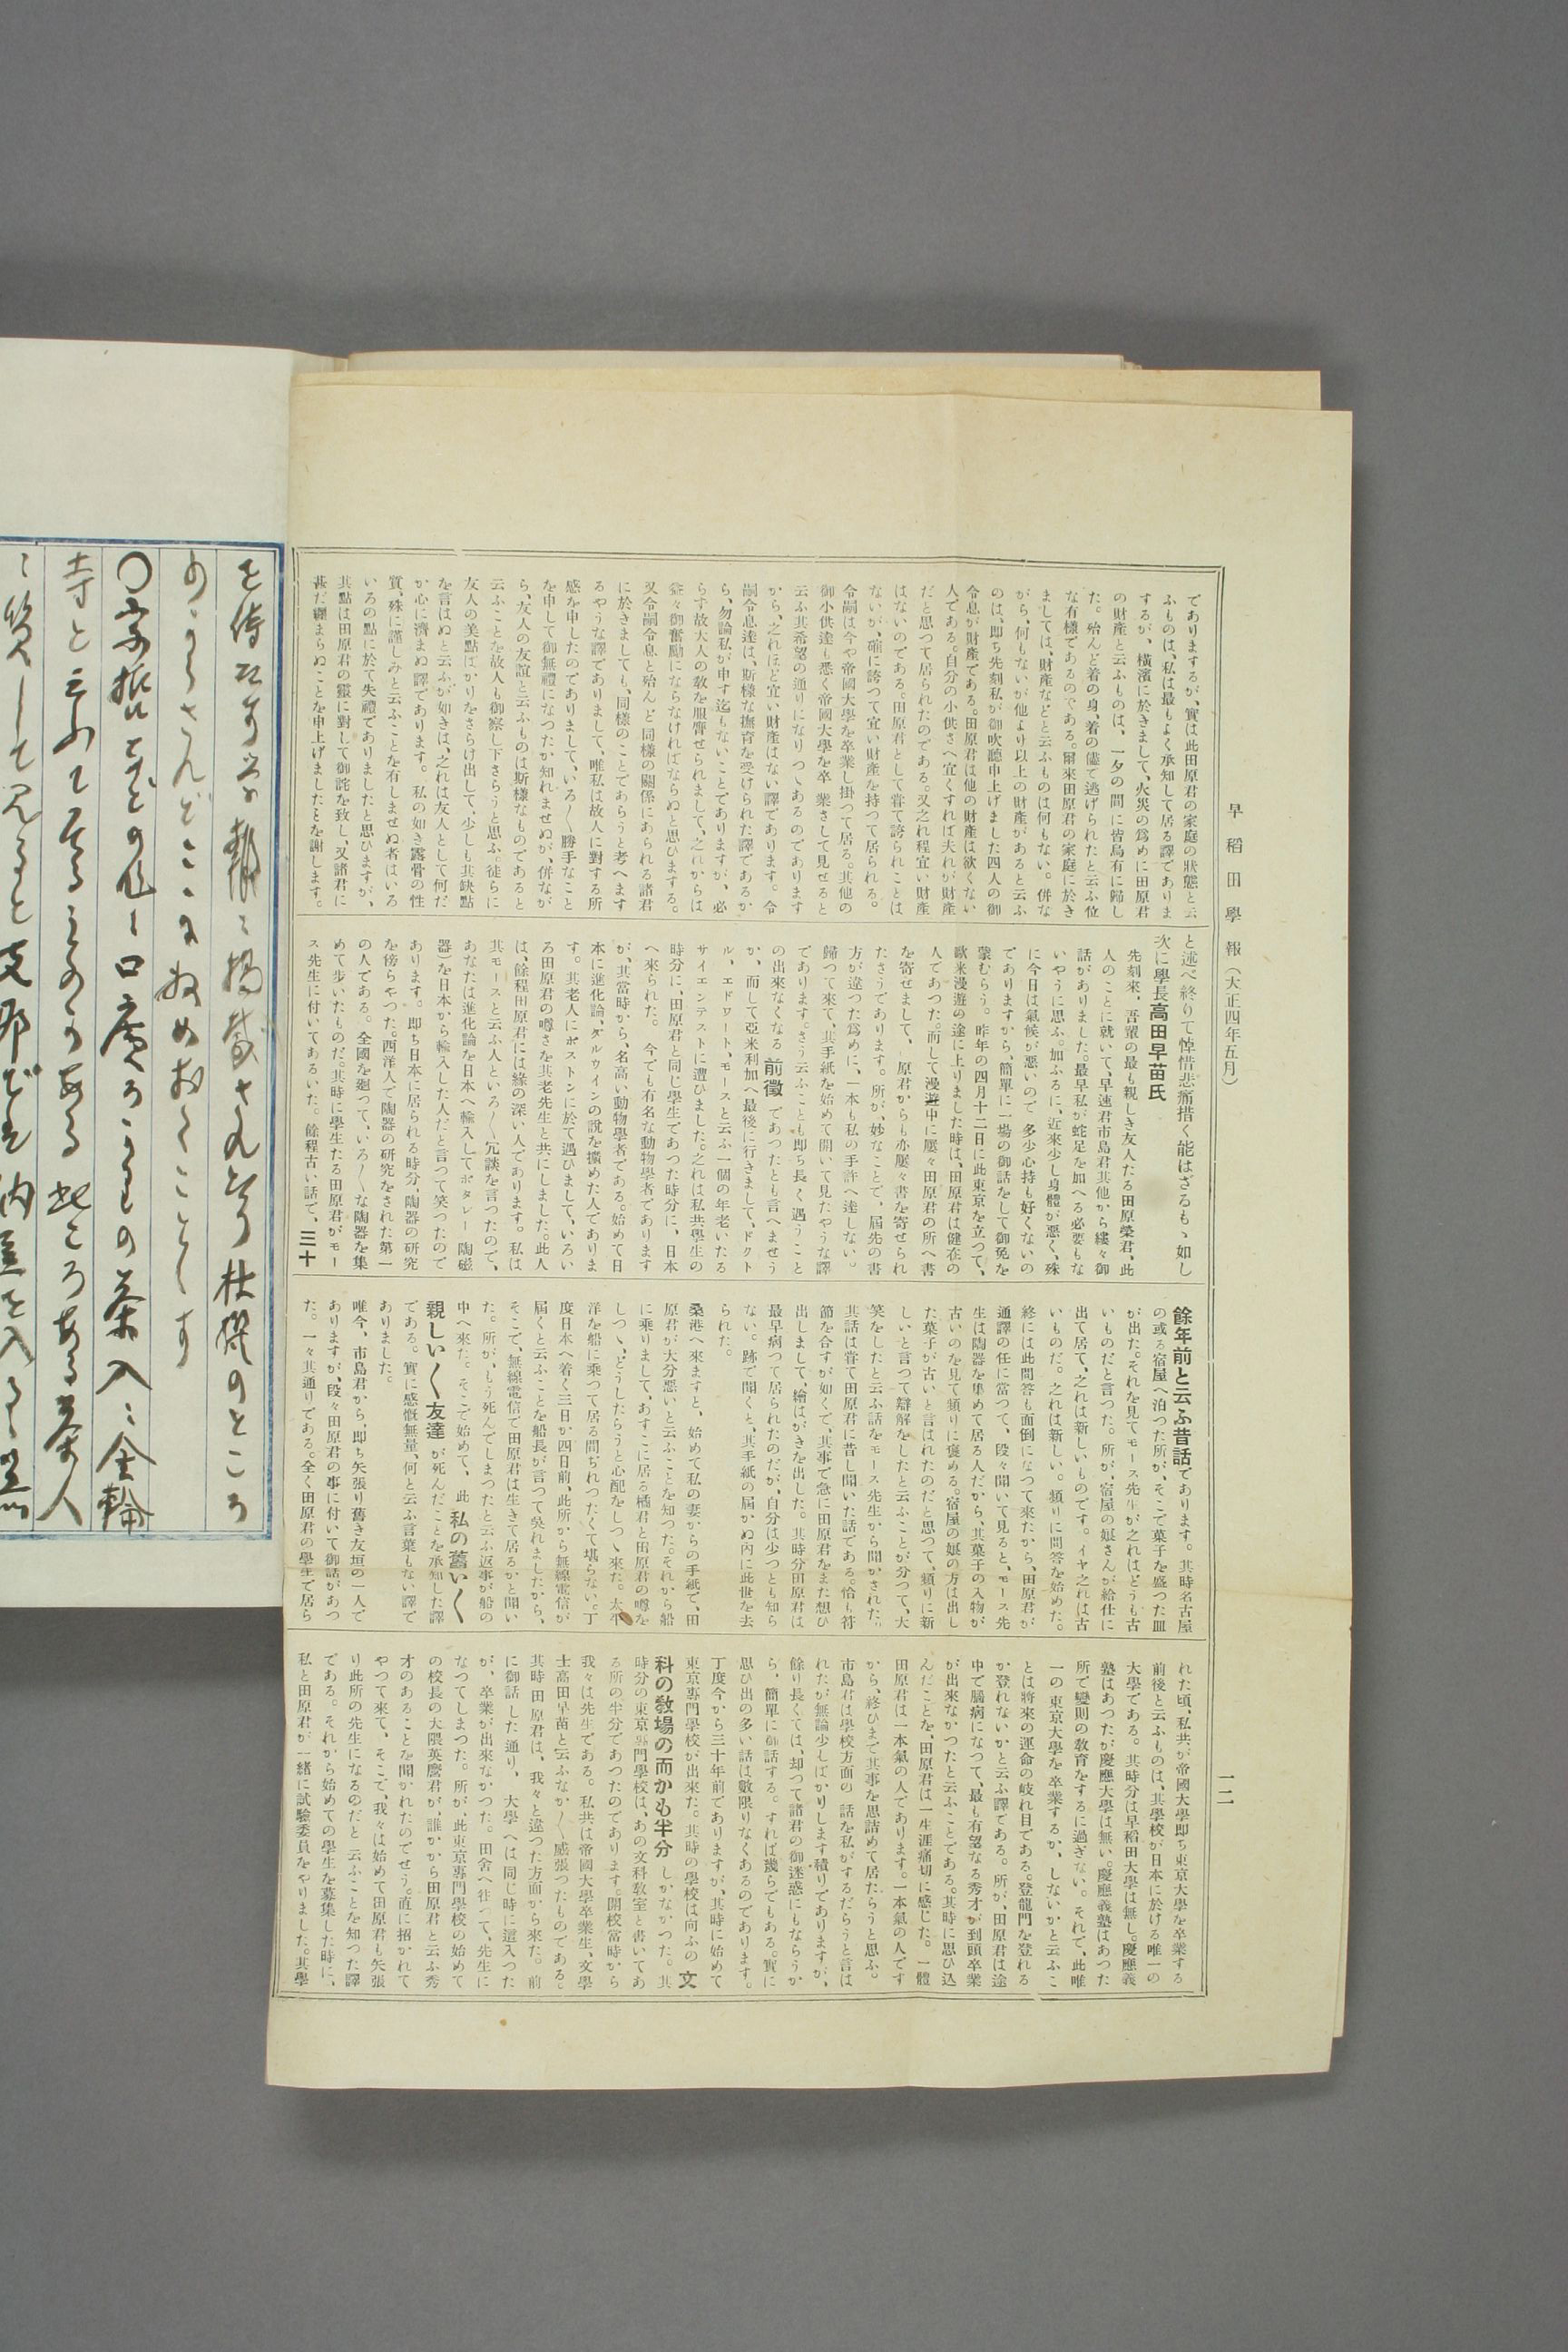 早稻田學報(大正四年五月)
一二
でありまするが、實は此田原君の家庭の狀態と云
ふものは、私は最もよく承知して居る譯でありま
するが、橫濱に於きまして、火災の爲めに田原君
の財產と云ふものは、一夕の間に皆烏有に歸し
た。殆んど着の身、着の儘で逃げられたと云ふ位
な有樣であるのである。爾來田原君の家庭に於き
ましては、財產などと云ふものは何もない。併な
がら、何もないが他より以上の財產があると云ふ
のは、即ち先刻私が御吹聽申上げました四人の御
令息が財產である。田原君は他の財產は欲くない
人である。自分の小供さへ宜くすれば夫れが財產
だと思つて居られたのである。又之れ程宜い財產
はないのである。田原君として嘗て誇られことは
ないが、確に誇つて宜い財產を持つて居られる。
令嗣は今や帝國大學を卒業し掛つて居る。其他の
御小供達も悉く帝國大學を卒業さして見せると
云ふ其希望の通りになりつゝあるのであります
から、之れほど宜い財產はない譯であります。令
嗣令息達は、斯樣な撫育を受けられた譯であるか
ら、勿論私が申す迄もないことでありますが、必
らず故大人の敎を服膺せられまして、之れからは
益々御奮勵にならなければならぬと思ひまする。
又令嗣令息と殆んど同樣の關係にあられる諸君
に於きましても、同樣のことであらうと考へます
るやうな譯でありまして、唯私は故人に對する所
感を申したのでありまして、いろ〱勝手なこと
を申して御無禮になつたか知れませぬが、併なが
ら、友人の友誼と云ふものは斯樣なものであると
云ふことを故人も御察し下さらうと思ふ。徒らに
友人の美點ばかりをさらけ出して、少しも其缺點
を言はぬと云ふが如きは、之れは友人として何だ
か心に濟まぬ譯であります。私の如き露骨の性
質、殊に謹しみと云ふことを有しませぬ者はいろ
いろの點に於て失禮でありましたと思ひますが、
其點は田原君の靈に對して御詫を致し、又諸君に
甚だ纒まらぬことを申上げましたとを謝します。
と述べ終りて悼惜悲痛措く能はざるもゝ如し
次に學長高田早苗氏
先刻來、吾輩の最も親しき友人たる田原榮君、此
人のことに就いて、早速君市島君其他から縷々御
話がありました。最早私が蛇足を加へる必要もな
いやうに思ふ。加ふるに、近來少し身體が惡く、殊
に今日は氣候が惡いので多少心持も好くないの
でありますから、簡單に一場の御話をして御免を
蒙むらう。昨年の四月十二日に此東京を立つて、
歐米漫遊の途に上りました時は、田原君は健在の
人であつた。而して漫遊中に屢々田原君の所へ書
を寄せまして、原君からも亦屢々書を寄せられ
たさうであります。所が、妙なことで、屆先の書
方が違つた爲めに、一本も私の手許へ達しない。
歸つて來て、其手紙を始めて開いて見たやうな譯
であります。さう云ふことも即ち長く遇うこと
の出來なくなる前徵であつたとも言へませう
か、而して亞米利加へ最後に行きまして、ドクト
ル、エドワート、モースと云ふ一個の年老いたる
サイエンテストに遭ひました。之れは私共學生の
時分に、田原君と同じ學生であつた時分に、日本
へ來られた。今でも有名な動物學者であります
が、其當時から、名高い動物學者である。始めて日
本に進化論、ダルウインの說を擴めた人でありま
す。其老人にボストンに於て遇ひまして、いろい
ろ田原君の噂さを其老先生と共にしました。此人
は、餘程田原君には緣の深い人であります。私は
其モースと云ふ人といろ〱冗談を言つたので、
あなたは進化論を日本へ輸入してポタレー(陶磁
器)を日本から輸入した人だと言つて笑つたので
あります。即ち日本に居られる時分、陶器の硏究
を傍らやつた。西洋人で陶器の硏究をされた第一
の人である。全國を廻つて、いろ〱な陶器を集
めて步いたものだ。其時に學生たる田原君がモー
ス先生に付いてあるいた。餘程古い話で、三十
餘年前と云ふ昔話であります。其時名古屋
の或る宿屋へ泊つた所が、そこで菓子を盛つた皿
が出た。それを見てモース先生が之れはどうも古
いものだと言つた。所が、宿屋の娘さんが給仕に
出て居て、之れは新しいものです。イヤ之れは古
いものだ。之れは新しい。頻りに問答を始めた。
終には此問答も面倒になつて來たから、田原君が
通譯の任に當つて、段々聞いて見ると、モース先
生は陶器を集めて居る人だから、其菓子の入物が
古いのを見て頻りに褒める。宿屋の娘の方は出し
た菓子が古いと言はれたのだと思つて、頻りに新
しいと言つて辯解をしたと云ふことが分つて、大
笑をしたと云ふ話をモース先生から聞かされた。
其話は嘗て田原君に昔し聞いた話である。恰も符
節を合すが如くで、其事で急に田原君をまた想ひ
出しまして、繪はがきを出した。其時分田原君は
最早病つて居られたのだが、自分は少つとも知ら
ない。跡で聞くと、其手紙の屆かぬ內に此世を去
られた。
桑港へ來ますと、始めて私の妻からの手紙で、田
原君が大分惡いと云ふことを知つた。それから船
に乘りまして、あすこに居る橘君と田原君の噂を
しつゝ、どうしたらうと心配をしつゝ來た。太平
洋を船に乘つて居る間ぢれつたくて堪らない。丁
度日本へ着く三日か四日前、此所から無線電信が
屆くと云ふことを船長が言つて吳れましたから、
そこで、無線電信で田原君は生きて居るかと聞い
た。所が、もう死んでしまつたと云ふ返事が船の
中へ來た。そこで始めて、此私の舊い〱
親しい〱友達が死んだことを承知した譯
である。實に感慨無量、何と云ふ言葉もない譯で
ありました。
唯今、市島君から、即ち矢張り舊き友垣の一人で
ありますが、段々田原君の事に付いて御話があつ
た。一々其通りである。全く田原君の學生で居ら
れた頃、私共が帝國大學即ち東京大學を卒業する
前後と云ふものは、其學校が日本に於ける唯一の
大學である。其時分は早稻田大學は無し。慶應義
塾はあつたが慶應大學は無い。慶應義塾はあつた
所で變則の敎育をするに過ぎない。それで、此唯
一の東京大學を卒業するか、しないかと云ふこ
とは將來の運命の岐れ目である。登龍門を登れる
か登れないかと云ふ譯である。所が、田原君は途
中で腦病になつて、最も有望なる秀才が到頭卒業
が出來なかつたと云ふことである。其時に思ひ込
んだことを、田原君は一生涯痛切に感じた。一體
田原君は一本氣の人であります。一本氣の人です
から、終ひまで其事を思詰めて居たらうと思ふ。
市島君は學校方面の話を私がするだらうと言は
れたが無論少しばかりします積りでありますが、
餘り長くては、却つて諸君の御迷惑にもならうか
ら、簡單に御話する。すれば幾らでもある。實に
思ひ出の多い話は數限りなくあるのであります。
丁度今から三十年前でありますが、其時に始めて
東京專門學校が出來た。其時の學校は向ふの文
科の敎場の而かも半分しかなかつた。其
時分の東京專門學校は、あの文科敎室と書いてあ
る所の半分であつたのであります。開校當時から
我々は先生である。私共は帝國大學卒業生、文學
士高田早苗と云ふなか〱威張つたものである。
其時田原君は、我々と違つた方面から來た。前
に御話した通り、大學へは同じ時に這入つた
が、卒業が出來なかつた。田舍へ往つて、先生に
なつてしまつた。所が、此東京專門學校の始めて
の校長の大隈英麿君が、誰かから田原君と云ふ秀
才のあることを聞かれたのでせう。直に招かれて
やつて來て、そこで、我々は始めて田原君も矢張
り此所の先生になるのだと云ふことを知つた譯
である。それから始めての學生を募集した時に、
私と田原君が一緖に試驗委員をやりました。其學